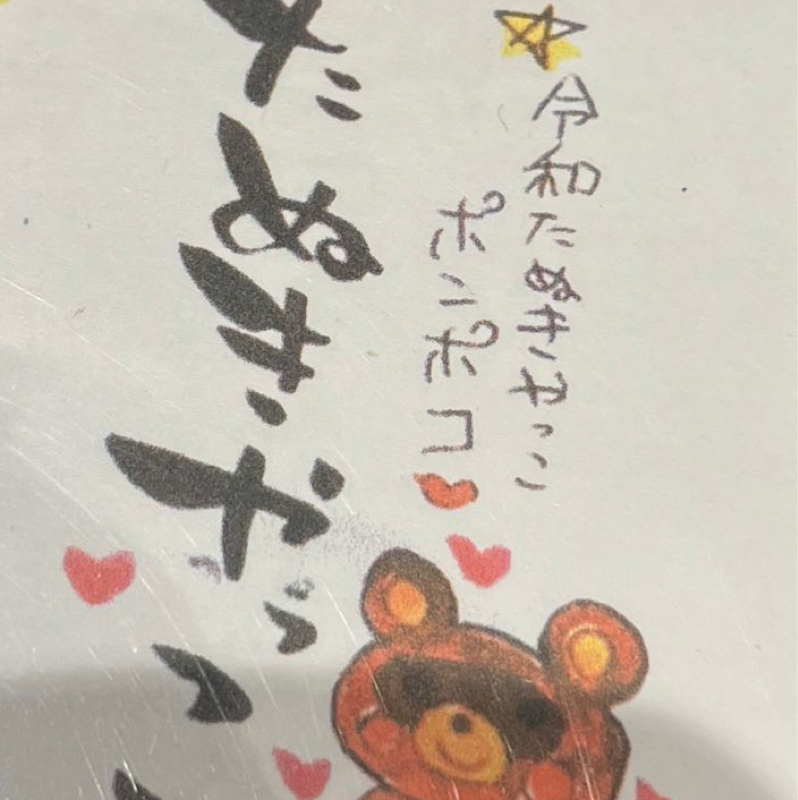 令和たぬきやっこ
ポンポコ
たぬきやっこ